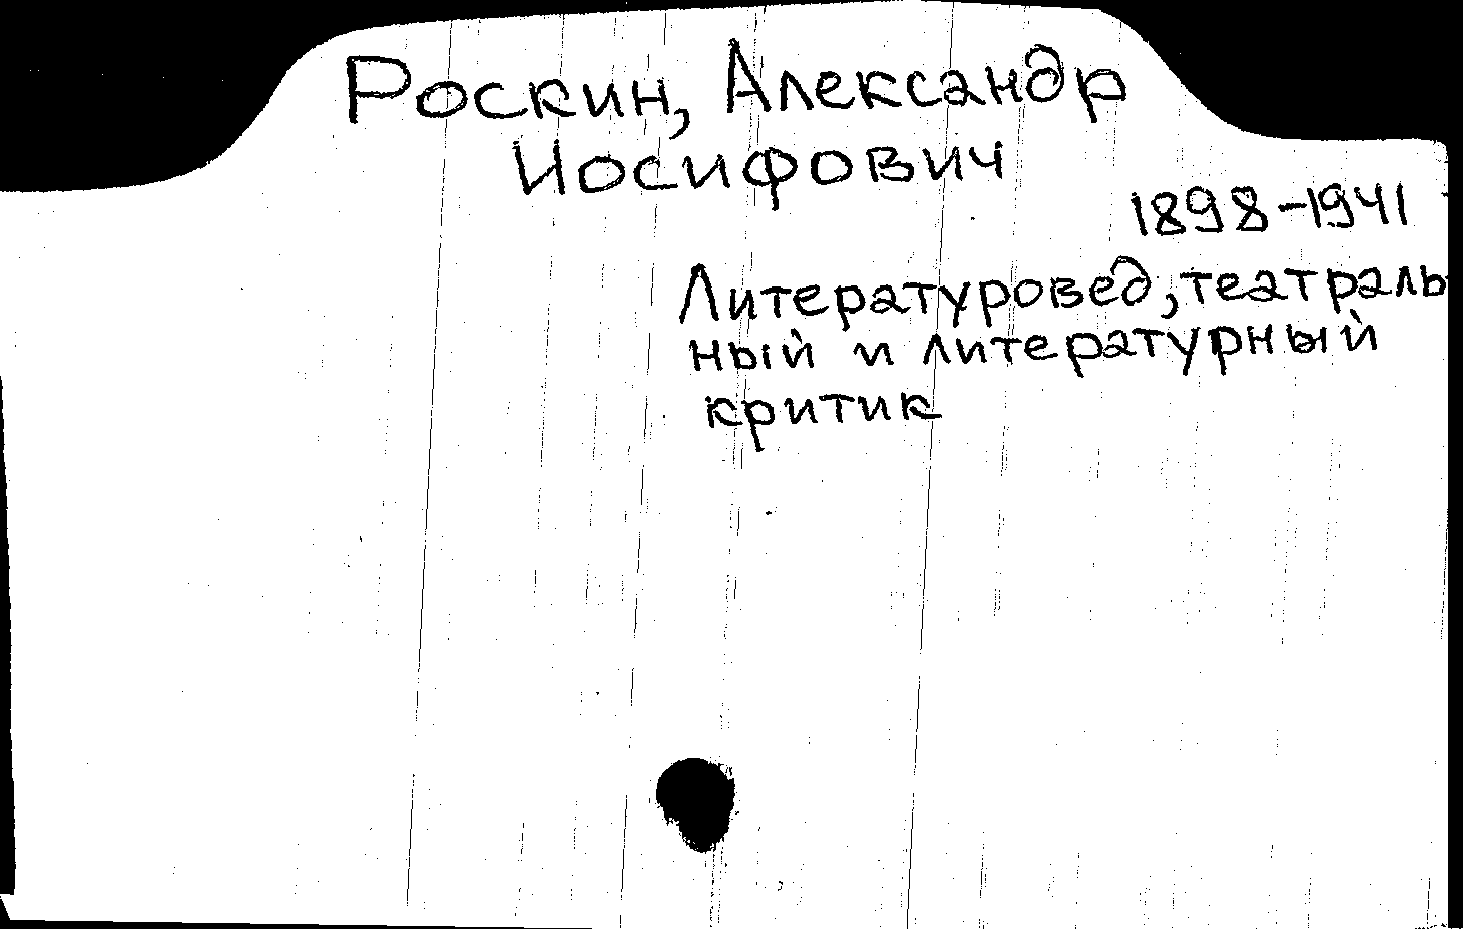 Роскин, Александр
Иосифович
1898-1941
Литературовед, театраль
ный и литературный
критик